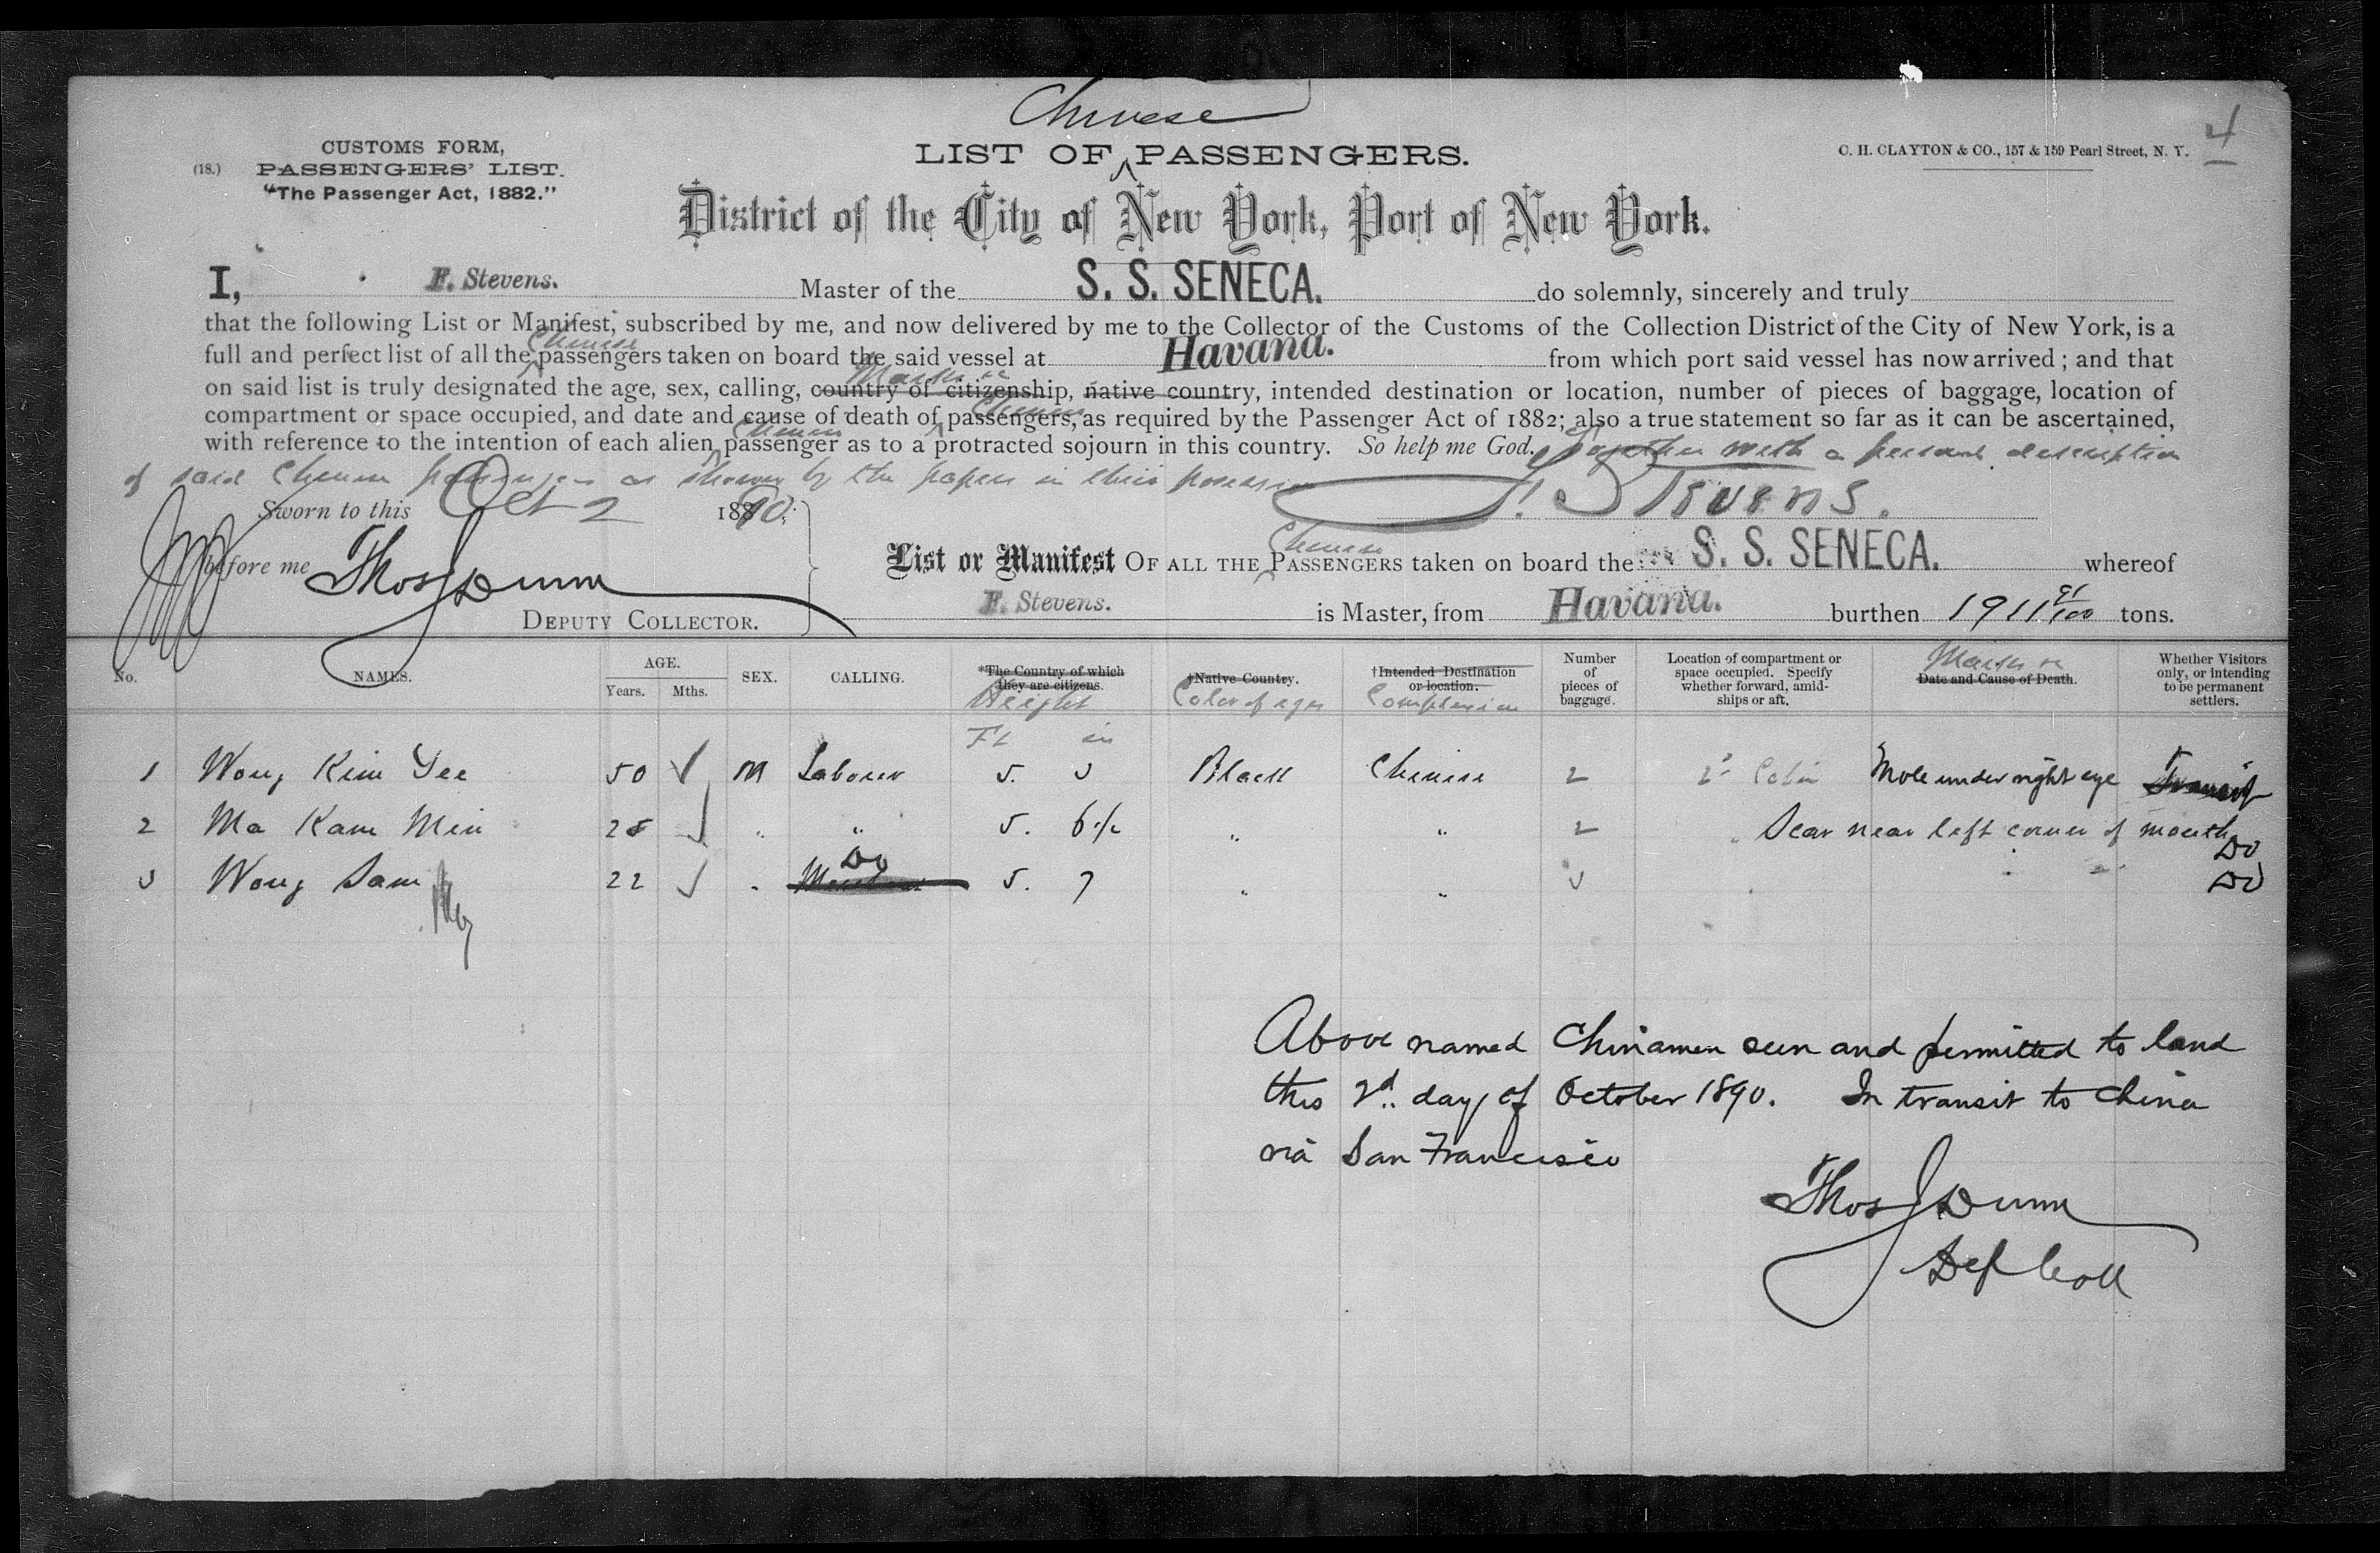 Chinese
4
CUSTOMS FORM,
(18.) PASSENGERS' LIST.
"The Passenger Act, 1882."
LIST OF PASSENGERS.
C. H. CLAYTON & CO., 157 & 159 Pearl Street, N. Y.
District of the City of New York, Port of New York.
I, F. Stevens. Master of the S. S. SENECA. do solemnly, sincerely and truly
that the following List or Manifest, subscribed by me, and now delivered by me to the Collector of the Customs of the Collection District of the City of New York, is a
Chinese
full and perfect list of all the passengers taken on board the said vessel at Havana. from which port said vessel has now arrived; and that
Marks &c
on said list is truly designated the age, sex, calling, country of citizenship, native country, intended destination or location, number of pieces of baggage, location of
Chinese
compartment or space occupied, and date and cause of death of passengers, as required by the Passenger Act of 1882; also a true statement so far as it can be ascertained,
Chinese
with reference to the intention of each alien passenger as to a protracted sojourn in this country. So help me God. together with a personal description
of said Chinese passengers as shown by the papers in their possession
Sworn to this Oct 2 1890. F. Stevens.
before me Thos J Dunn
DEPUTY COLLECTOR.
Chinese
List or Manifest OF ALL THE PASSENGERS taken on board the S. S. SENECA. whereof
F. Stevens. is Master, from Havana. burthen 1911 91/100 tons.
No. NAMES. AGE. Years. Mths. SEX. CALLING. *The Country of which they are citizens. Height †Native Country. Color of eyes †Intended Destination or location. Complexion Number of pieces of baggage. Location of compartment or space occupied. Specify whether forward, amidships or aft. Marks &c Date and Cause of Death. Whether Visitors only, or intending to be permanent settlers.
Ft in
1 Wong Kim Yee 50 ✓ M Laborer 5. 3 Black Chinese 2 2d Cabin Mole under right eye Transit
2 Ma Kam Min 25 ✓ " " 5. 6 1/2 " " 2 " Scar near left corner of mouth Do
3 Wong Sam 22 ✓ " Do 5. 7 " " 3 " " Do
Above named Chinamen seen and permitted to land
this 2d day of October 1890. In transit to China
via San Francisco
Thos J Dunn
Dep Coll